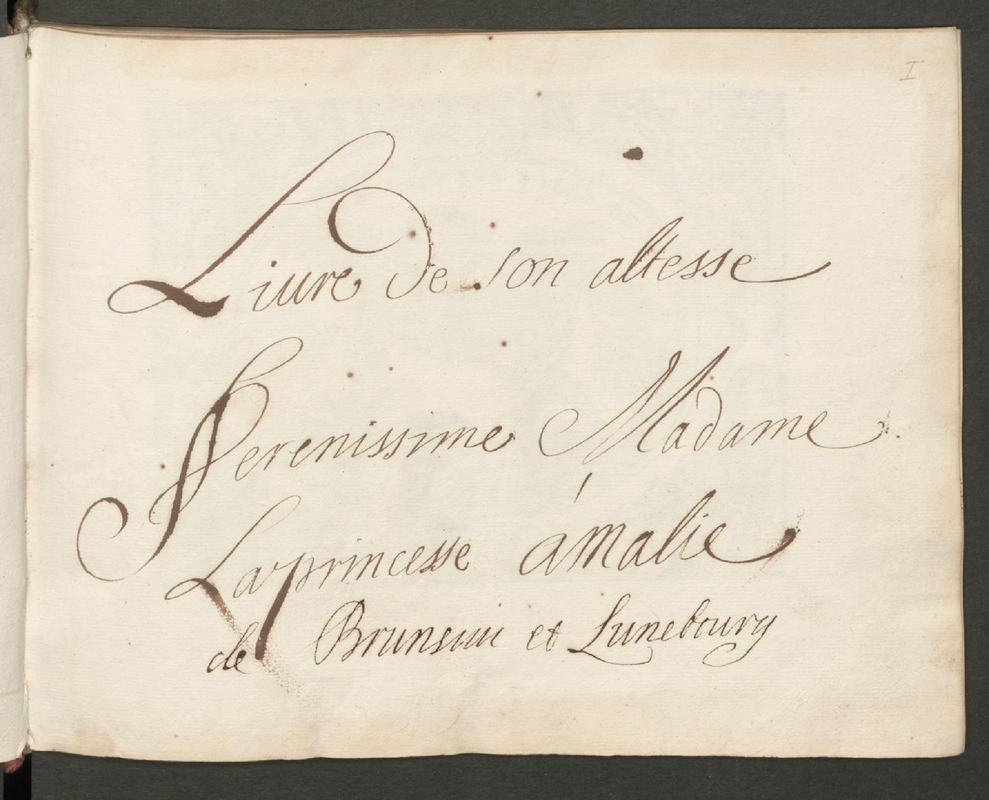 I
Liure de son altesse
Serenissime Madame
La princesse ámalie
de Brunsuic et Lunebourg